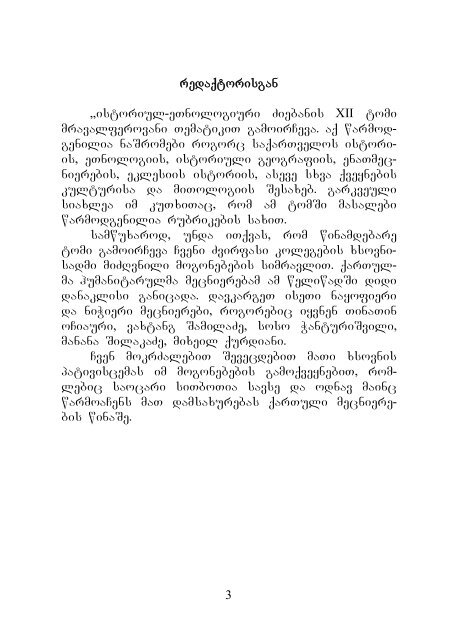 რედაქტორისგან
„ისტორიულ-ეთნოლოგიური ძიებანის XII ტომი
მრავალფეროვანი თემატიკით გამოირჩევა. აქ წარმოდ-
გენილია ნაშრომები როგორც საქართველოს ისტორი-
ის, ეთნოლოგიის, ისტორიული გეოგრაფიის, ენათმეც-
ნიერების, ეკლესიის ისტორიის, ასევე სხვა ქვეყნების
კულტურისა და მითოლოგიის შესახებ. გარკვეული
სიახლეა იმ კუთხითაც, რომ ამ ტომში მასალები
წარმოდგენილია რუბრიკების სახით.
სამწუხაროდ, უნდა ითქვას, რომ წინამდებარე
ტომი გამოირჩევა ჩვენი ძვირფასი კოლეგების ხსოვნი-
სადმი მიძღვნილი მოგონებების სიმრავლით. ქართულ-
მა ჰუმანიტარულმა მეცნიერებამ ამ წელიწადში დიდი
დანაკლისი განიცადა. დავკარგეთ ისეთი ნაყოფიერი
და ნიჭიერი მეცნიერები, როგორებიც იყვნენ თინათინ
ოჩიაური, ვახტანგ შამილაძე, სოსო ჭანტურიშვილი,
მანანა შილაკაძე, მიხეილ ქურდიანი.
ჩვენ მოკრძალებით შევეცდებით მათი ხსოვნის
პატივისცემას იმ მოგონებების გამოქვეყნებით, რომ-
ლებიც საოცარი სითბოთია სავსე და ოდნავ მაინც
წარმოაჩენს მათ დამსახურებას ქართული მეცნიერე-
ბის წინაშე.
3